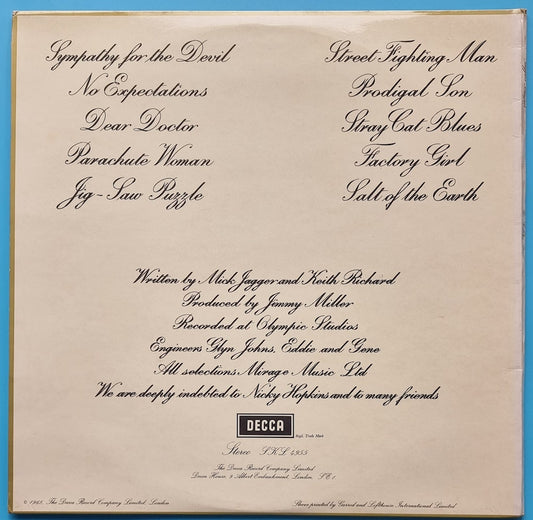 Sympathy for the Devil
No Expectations
Dear Doctor
Parachute Woman
Jig-Saw Puzzle
Street Fighting Man
Prodigal Son
Stray Cat Blues
Factory Girl
Salt of the Earth
Written by Mick Jagger and Keith Richard
Produced by Jimmy Miller
Recorded at Olympic Studios
Engineers Glyn Johns, Eddie and Gene
All selections Mirage Music Ltd
We are deeply indebted to Nicky Hopkins and to many friends
DECCA
Regd. Trade Mark
Stereo SKL 4955
The Decca Record Company Limited
Decca House, 9 Albert Embankment, London, S.E.1.
© 1968, The Decca Record Company Limited, London
Sleeve printed by Garrod and Lofthouse International Limited